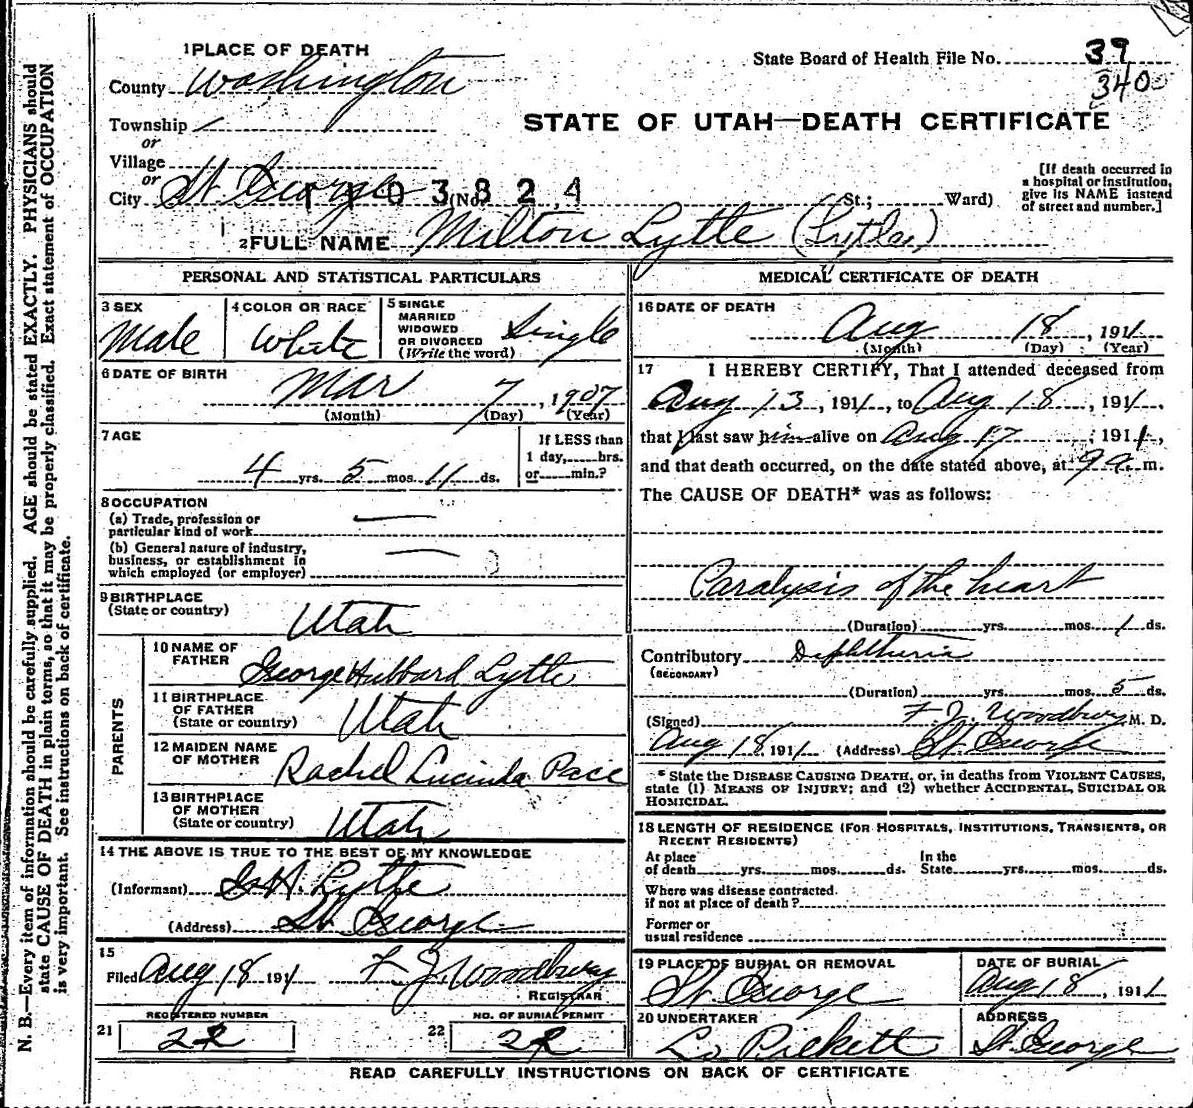 1 PLACE OF DEATH
State Board of Health File No. 39
340
County Washington
Township
or
STATE OF UTAH—DEATH CERTIFICATE
Village
or
City St George (No. St.; Ward)
1103824
[If death occurred in
a hospital or institution,
give its NAME instead
of street and number.]
2 FULL NAME Milton Lytle (Lytle)
PERSONAL AND STATISTICAL PARTICULARS
3 SEX
Male
4 COLOR OR RACE
White
5 SINGLE
MARRIED
WIDOWED
OR DIVORCED
(Write the word)
Single
6 DATE OF BIRTH
Mar 7, 1907
(Month) (Day) (Year)
7 AGE
4 yrs. 5 mos. 11 ds.
If LESS than
1 day, hrs.
or min.?
8 OCCUPATION
(a) Trade, profession or
particular kind of work —
(b) General nature of industry,
business, or establishment in
which employed (or employer) —
9 BIRTHPLACE
(State or country) Utah
PARENTS
10 NAME OF
FATHER George Hubbard Lytle
11 BIRTHPLACE
OF FATHER
(State or country) Utah
12 MAIDEN NAME
OF MOTHER Rachel Lucinda Pace
13 BIRTHPLACE
OF MOTHER
(State or country) Utah
14 THE ABOVE IS TRUE TO THE BEST OF MY KNOWLEDGE
(Informant) G H. Lytle
(Address) St George
15
Filed Aug 18 1911 F J Woodbury
REGISTRAR
REGISTERED NUMBER
21 22
NO. OF BURIAL PERMIT
22 22
MEDICAL CERTIFICATE OF DEATH
16 DATE OF DEATH
Aug 18, 1911
(Month) (Day) (Year)
17 I HEREBY CERTIFY, That I attended deceased from
Aug 13, 1911, to Aug 18, 1911,
that I last saw him alive on Aug 17, 1911,
and that death occurred, on the date stated above, at 9 a. m.
The CAUSE OF DEATH* was as follows:
Paralysis of the heart
(Duration) yrs. mos. 1 ds.
Contributory Diphtheria
(SECONDARY)
(Duration) yrs. mos. 5 ds.
(Signed) F J. Woodbury M. D.
Aug 18, 1911 (Address) St. George
* State the DISEASE CAUSING DEATH, or, in deaths from VIOLENT CAUSES,
state (1) MEANS OF INJURY; and (2) whether ACCIDENTAL, SUICIDAL OR
HOMICIDAL.
18 LENGTH OF RESIDENCE (FOR HOSPITALS, INSTITUTIONS, TRANSIENTS, OR
RECENT RESIDENTS)
At place
of death yrs. mos. ds.
In the
State yrs. mos. ds.
Where was disease contracted.
if not at place of death?
Former or
usual residence
19 PLACE OF BURIAL OR REMOVAL
St. George
DATE OF BURIAL
Aug 18, 1911
20 UNDERTAKER
Pickett
ADDRESS
St. George
READ CAREFULLY INSTRUCTIONS ON BACK OF CERTIFICATE
N. B.—Every item of information should be carefully supplied. AGE should be stated EXACTLY. PHYSICIANS should
state CAUSE OF DEATH in plain terms, so that it may be properly classified. Exact statement of OCCUPATION
is very important. See instructions on back of certificate.